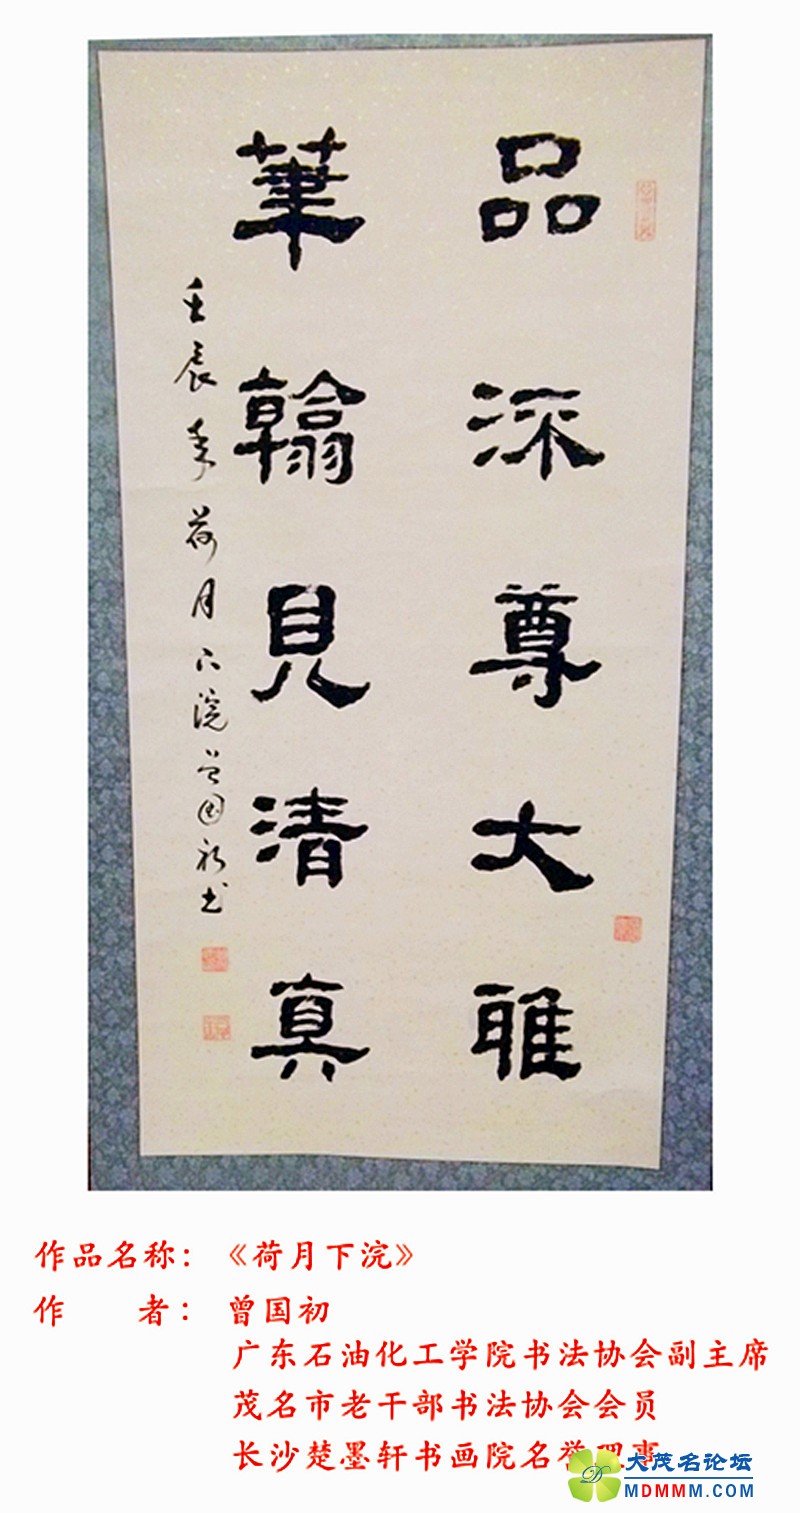 品 尊大雅
筆翰見清真
壬辰年荷月下浣曾国初书
作品名称：《荷月下浣》
作 者：曾国初
广东石油化工学院书法协会副主席
茂名市老干部书法协会会员
长沙楚墨轩书画院名誉理事
大茂名论坛
MDMMM.COM